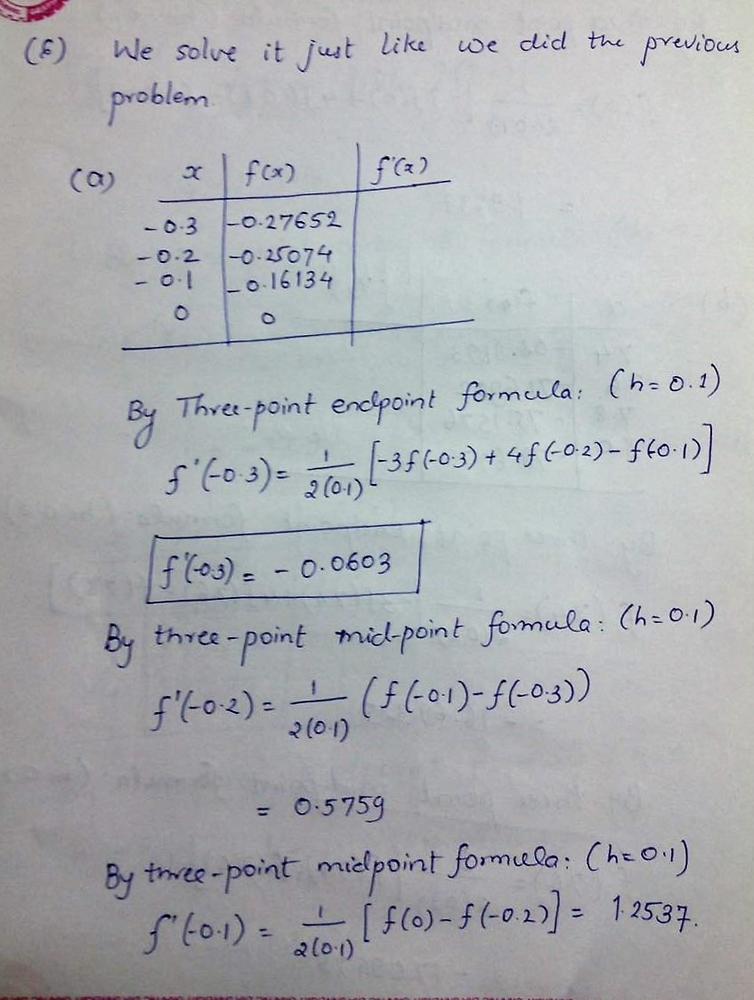 (6) We solve it just like we did the previous
problem.
(a) x f(x) f'(x)
-0.3 -0.27652
-0.2 -0.25074
-0.1 -0.16134
0 0
By Three-point endpoint formula: (h=0.1)
f'(-0.3) = 1/2(0.1) [-3f(-0.3) + 4f(-0.2) - f(-0.1)]
f'(-0.3) = - 0.0603
By three-point mid-point formula: (h=0.1)
f'(-0.2) = 1/2(0.1) (f(-0.1)-f(-0.3))
= 0.5759
By three-point midpoint formula: (h=0.1)
f'(-0.1) = 1/2(0.1) [f(0)-f(-0.2)] = 1.2537.